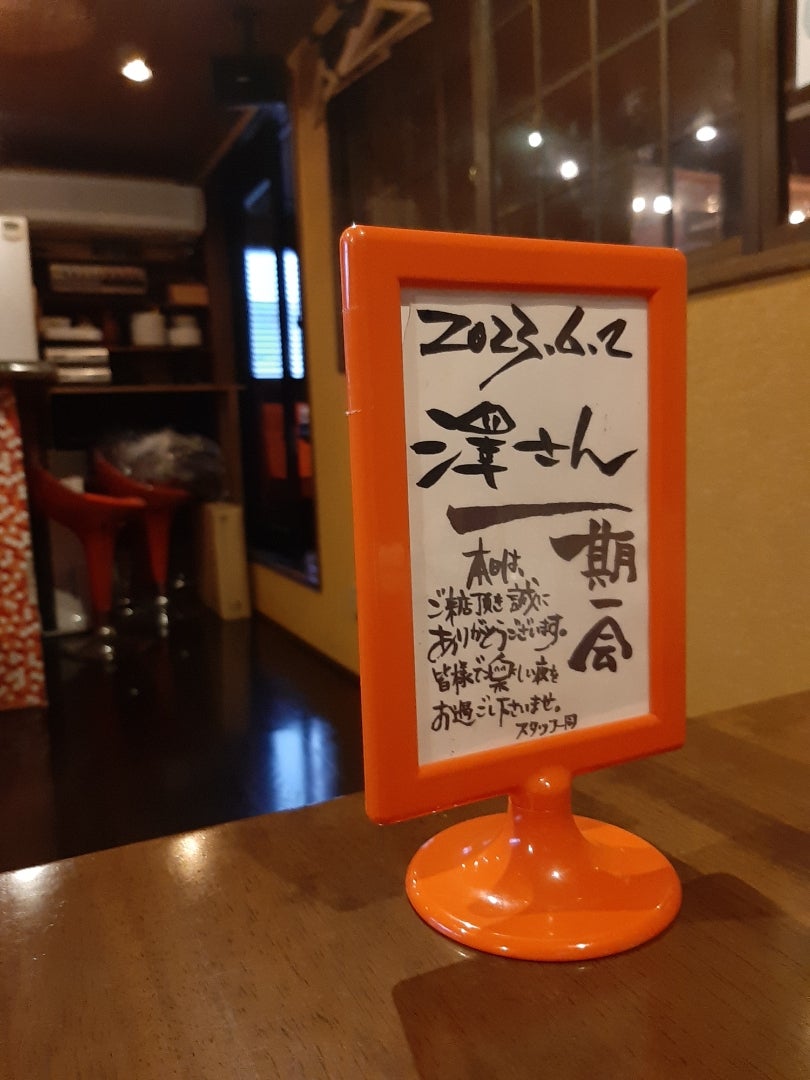 2023.6.2
澤さん
一期一会
本日は、
ご来店頂き誠に
ありがとうございます。
皆様で楽しい夜を
お過ごし下さいませ。
スタッフ一同